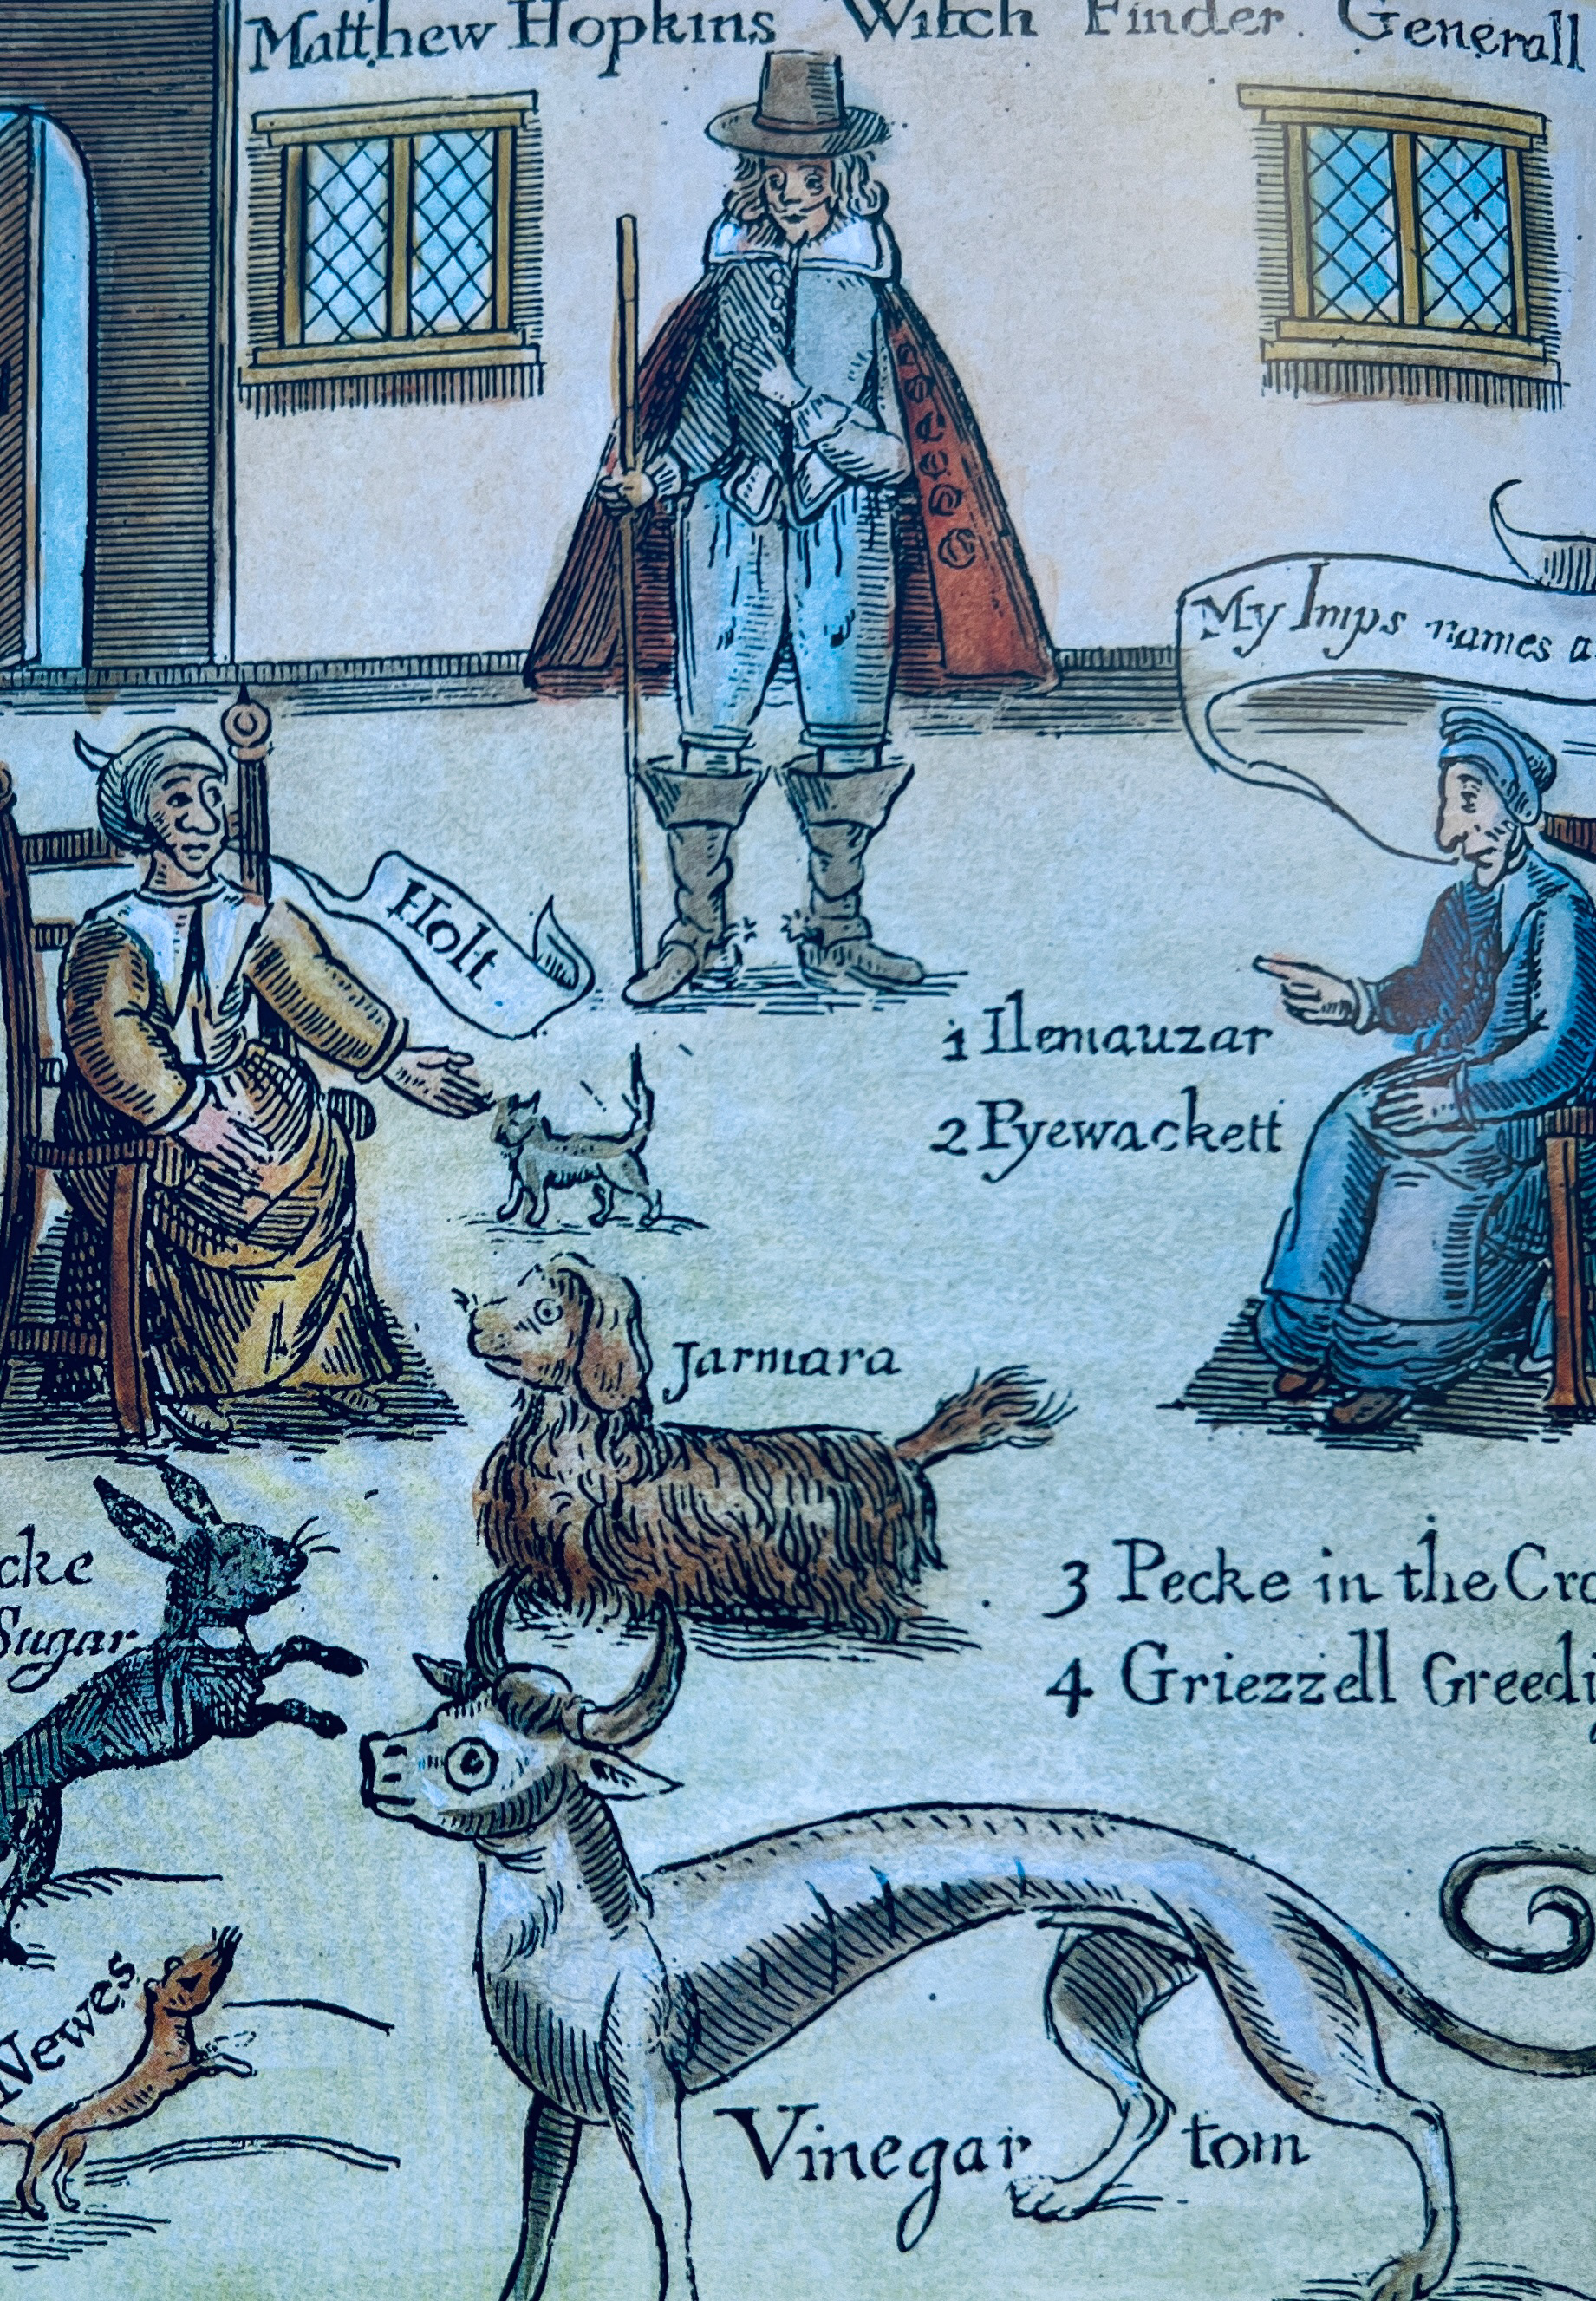 Matthew Hopkins Witch Finder Generall
My Imps names
Holt
1 Ilemauzar
2 Pyewackett
Jarmara
3 Pecke in the
4 Griezzell
Sugar
Newes
Vinegar tom